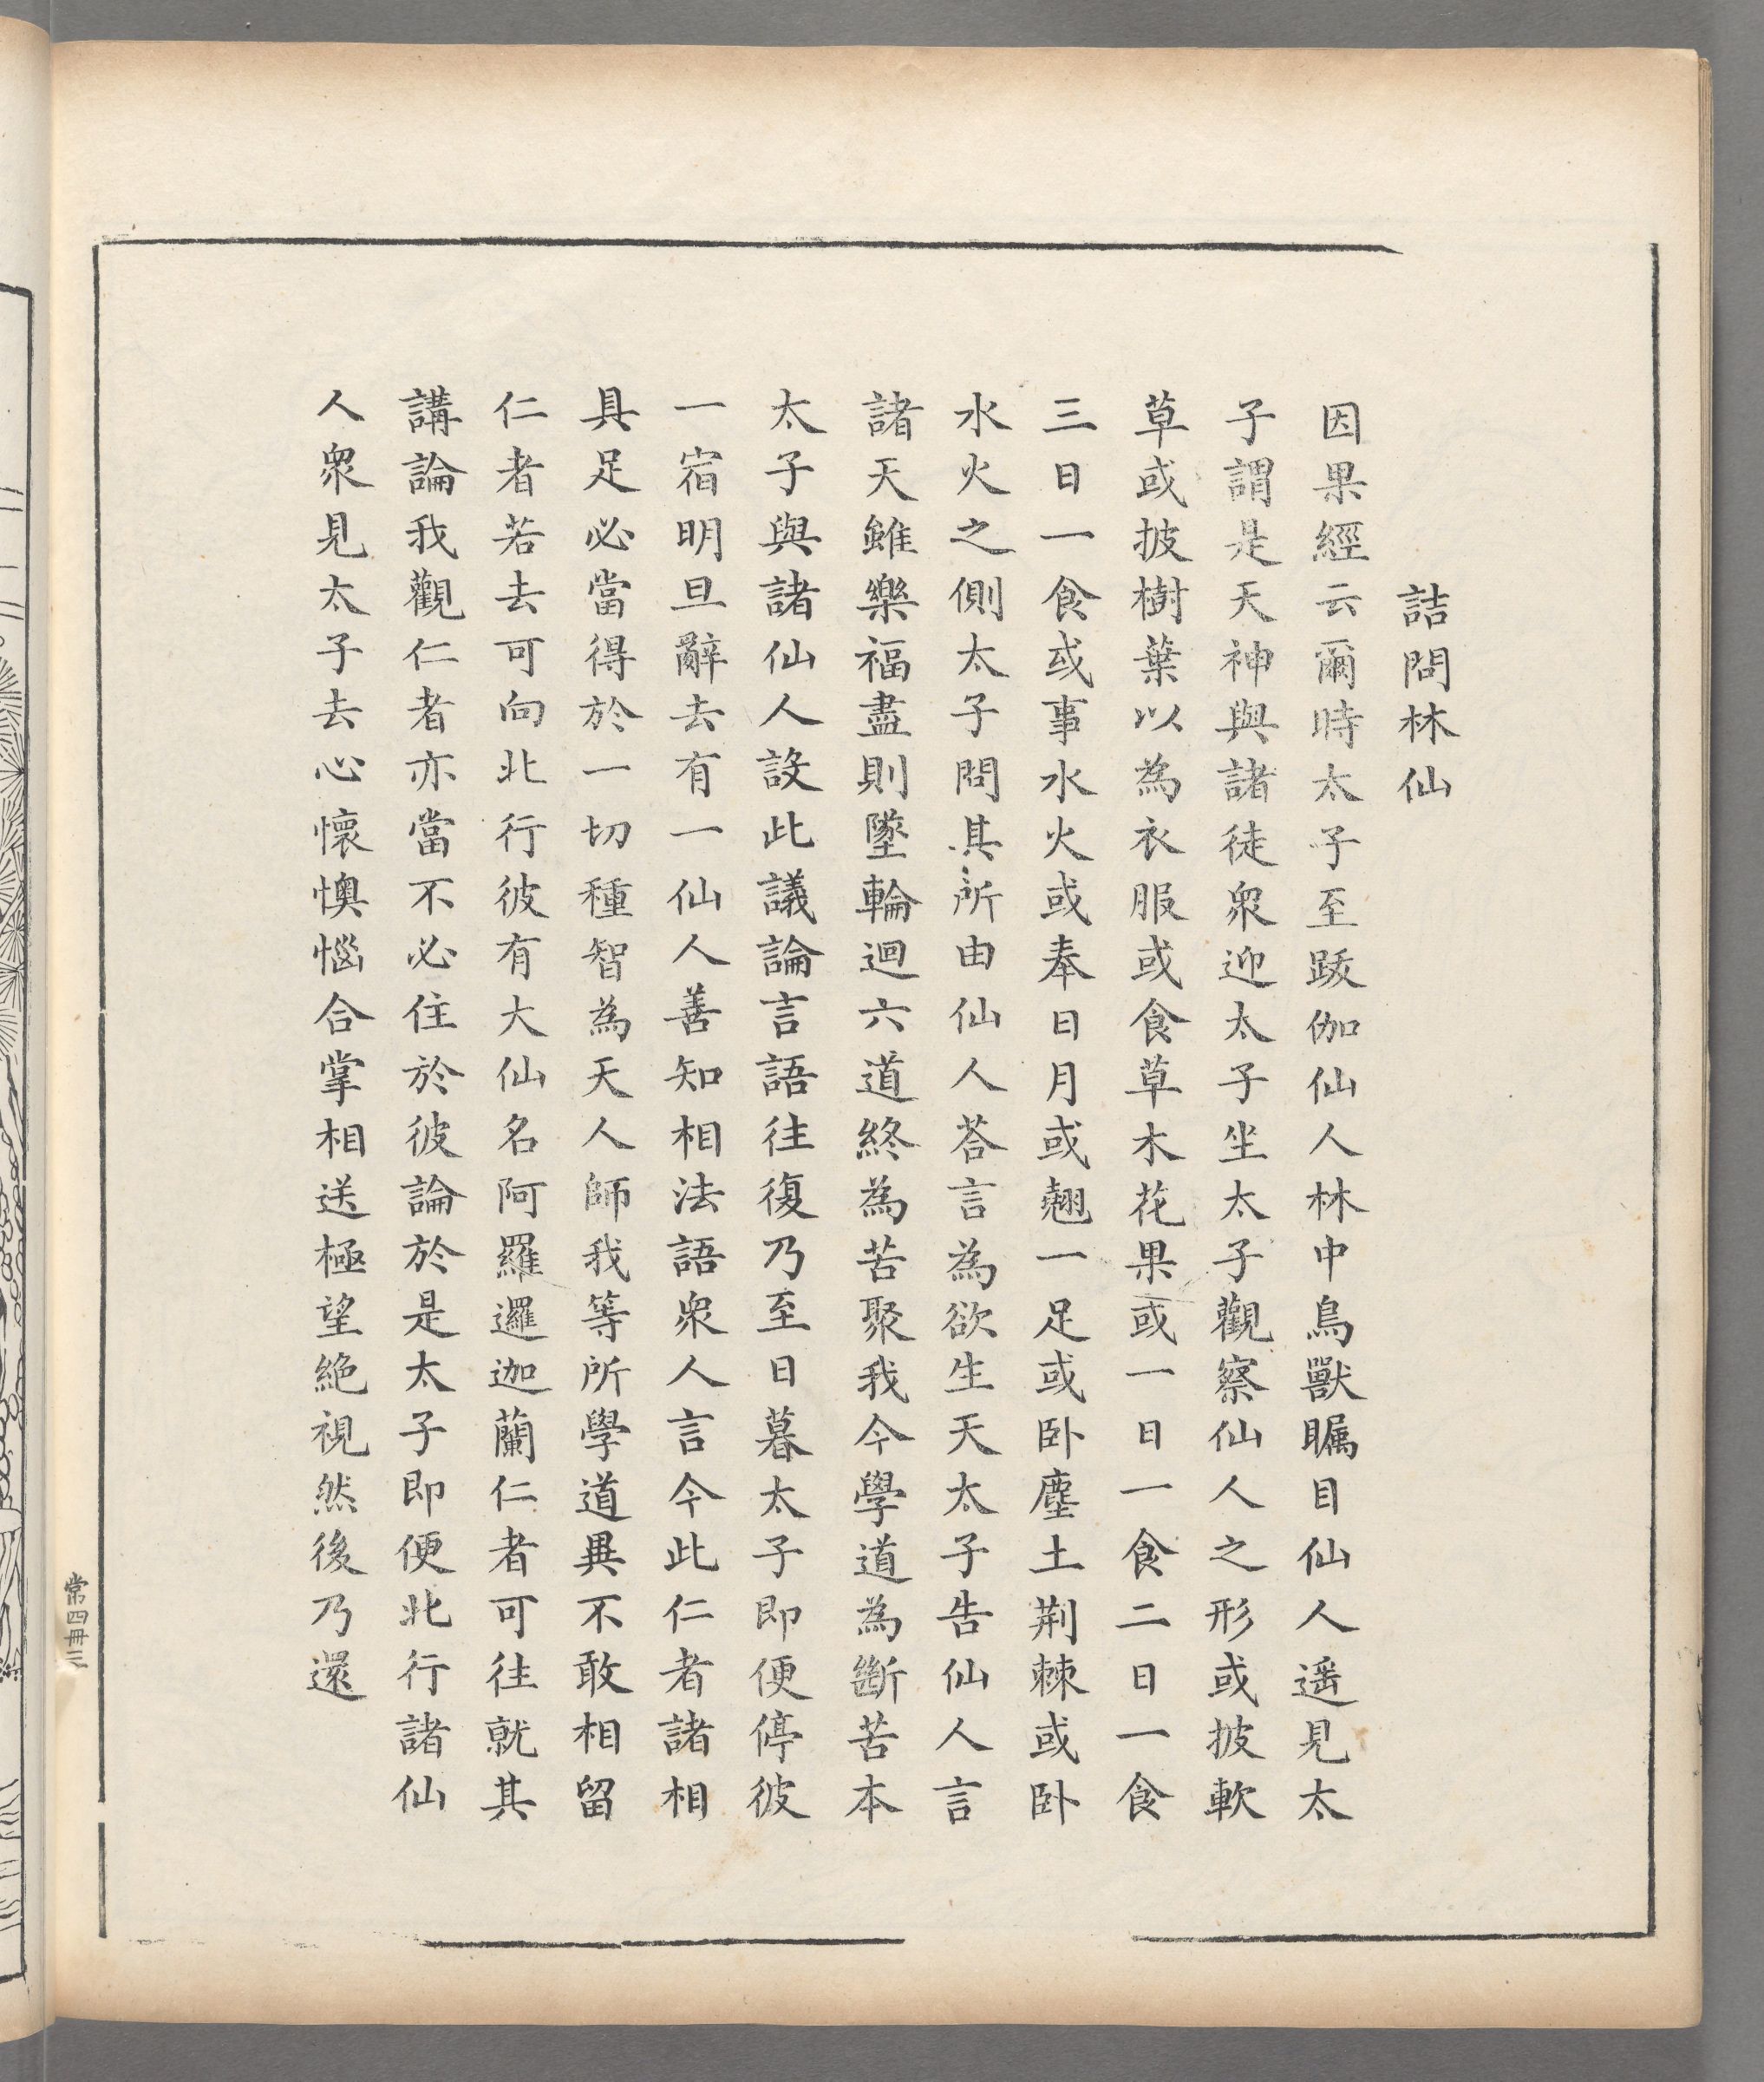 詰問林仙
因果經云爾時太子至跋伽仙人林中鳥獸矚目仙人遥見太
子謂是天神與諸徒衆迎太子坐太子觀察仙人之形或披軟
草或披樹葉以為衣服或食草木花果或一日一食二日一食
三日一食或事水火或奉日月或翹一足或卧塵土荆棘或卧
水火之側太子問其所由仙人荅言為欲生天太子告仙人言
諸天雖樂福盡則墜輪迴六道終為苦聚我今學道為斷苦本
太子與諸仙人設此議論言語往復乃至日暮太子即便停彼
一宿明旦辭去有一仙人善知相法語衆人言今此仁者諸相
具足必當得於一切種智為天人師我等所學道異不敢相留
仁者若去可向北行彼有大仙名阿羅邏迦蘭仁者可往就其
講論我觀仁者亦當不必住於彼論於是太子即便北行諸仙
人衆見太子去心懷懊惱合掌相送極望絶視然後乃還
常四冊三